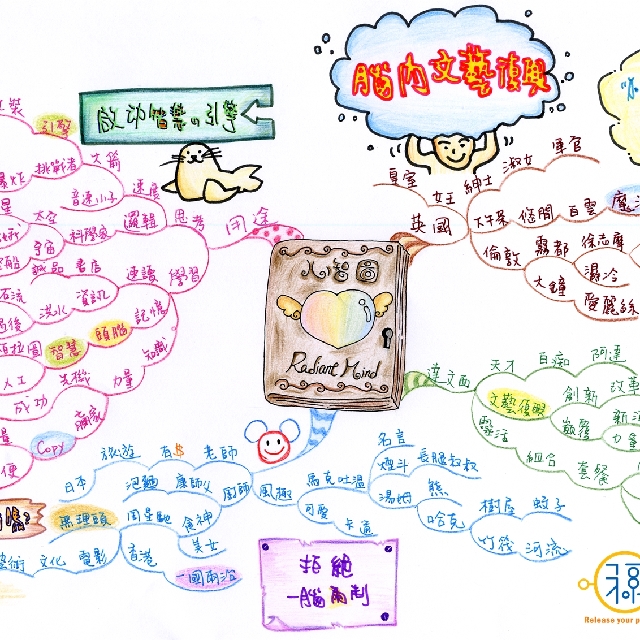 腦內文藝復興
啟功智慧の引擎
引擎
挑戰者
火箭
音速小子
速度
太空
邏輯
思考
用途
宇宙
科學家
誠品
書店
速讀
學習
洪水
資訊
記憶
智慧
頭腦
知識
人工
先機
力量
成功
贏家
Copy
便
心智圖
Radiant Mind
皇室
女王
紳士
淑女
英國
下午茶
悠閒
白雲
倫敦
霧都
徐志摩
大鐘
濕冷
愛麗絲
達文西
天才
白痴
阿達
文藝復興
創新
改革
顛覆
力量
組合
套餐
日本
旅遊
有$
老師
泡麵
康師父
廚師
風趣
馬克吐溫
名言
煙斗
長腿叔叔
湯姆
熊
哈克
樹屋
蚊子
竹筏
河流
可愛
卡通
無理頭
周星馳
食神
美女
藝術
文化
電影
香港
一國兩治
拒絕
一腦兩制
Release your p